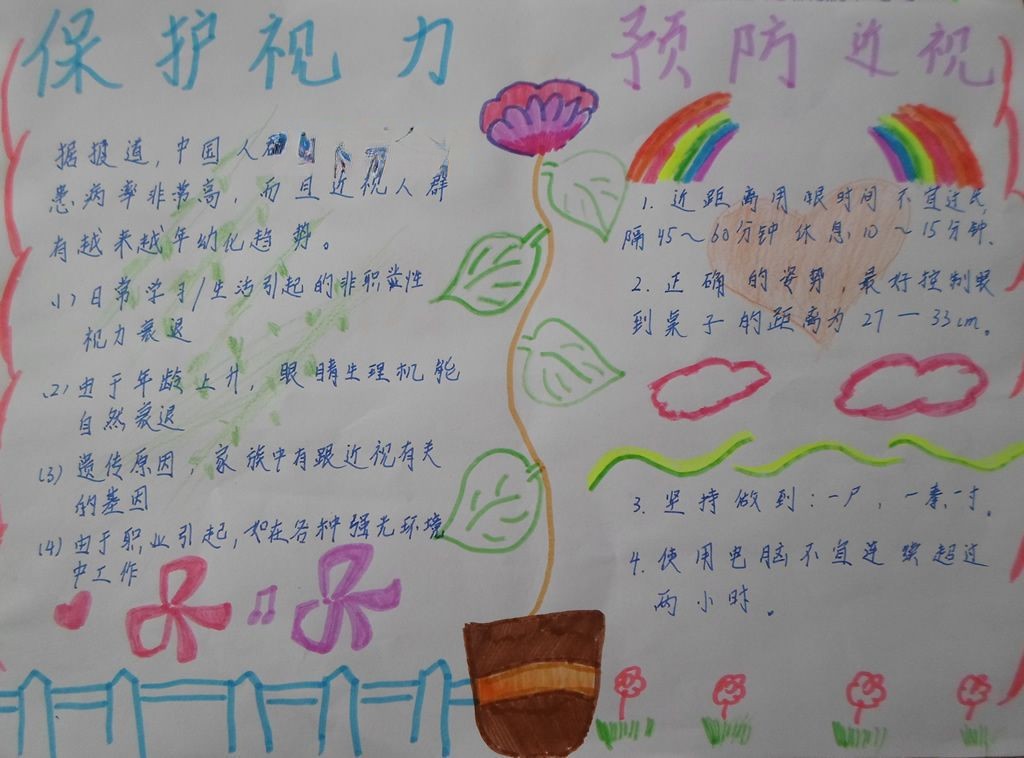 保护视力
预防近视
据报道，中国人群
患病率非常高，而且近视人群
有越来越年幼化趋势。
(1) 日常学习/生活引起的非职业性
视力衰退
(2) 由于年龄上升，眼睛生理机能
自然衰退
(3) 遗传原因，家族中有跟近视有关
的基因
(4) 由于职业引起，如在各种强光环境
中工作
1. 近距离用眼时间不宜过长，
隔45～60分钟休息10～15分钟。
2. 正确的姿势，最好控制眼
到桌子的距离为27—33cm。
3. 坚持做到：一尺，一拳，一寸。
4. 使用电脑不宜连续超过
两小时。